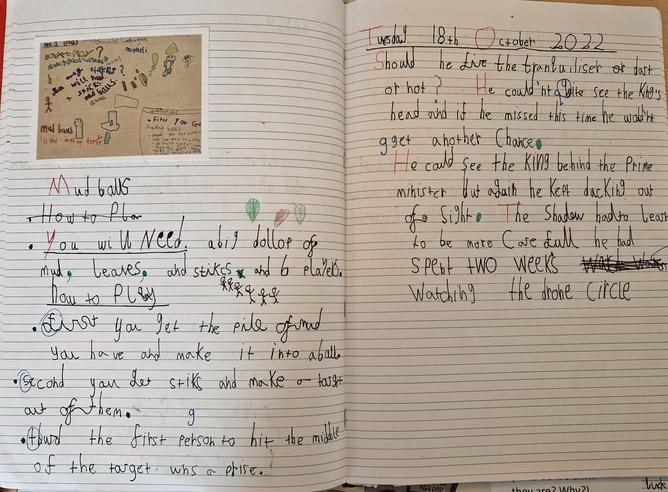 How to Play?
mud balls
Mud balls
How to Pla
You will Need. a big dollop of
mud, leaves, and stikes and 6 players.
how to Play
first you get the pile of mud
you have and make it into a ball.
second you get stiks and make a target
out of them.
g
thurd the first person to hit the middle
of the target wns a prise.
Tuesday 18th October 2022
Should he five the tranquiliser dart
or not? He could'nt Quite see the King's
head and if he missed this time he wo'dnt
g get another Chance.
He could see the KING behind the Prime
minister but again he Kept ducking out
of Sight. The Shadow had to Least
to be more Care full he had
SPENT TWO WEEKS
Watching the drone CIRCLE
they are? Why?!